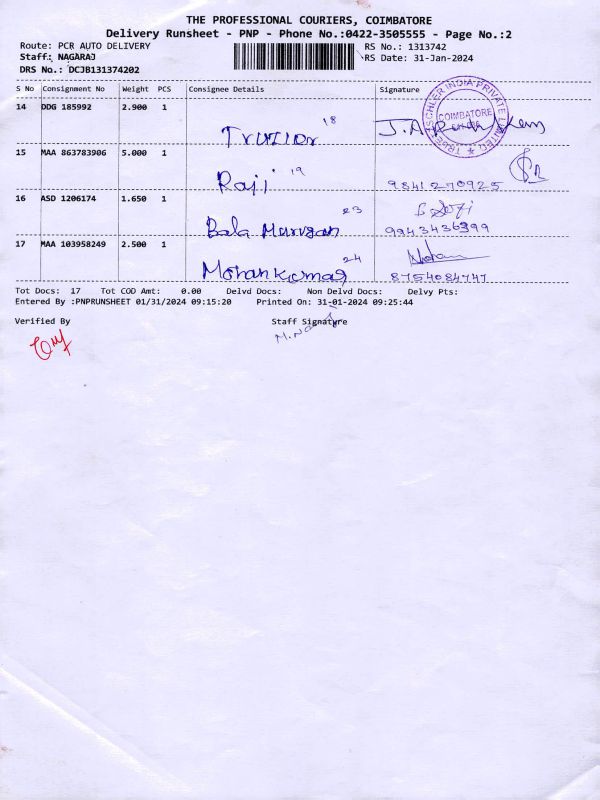 THE PROFESSIONAL COURIERS, COIMBATORE
Delivery Runsheet - PNP - Phone No.:0422-3505555 - Page No.:2
Route: PCR AUTO DELIVERY RS No.: 1313742
Staff: NAGARAJ RS Date: 31-Jan-2024
DRS No.: DCJB131374202
S No Consignment No Weight PCS Consignee Details Signature
14 DDG 185992 2.900 1
18
COIMBATORE
15 MAA 863783906 5.000 1
Raji 19 9841270925
16 ASD 1206174 1.650 1
Bala Murugan 23 9943436399
17 MAA 103958249 2.500 1
Mohankumar 24 8754084747
Tot Docs: 17 Tot COD Amt: 0.00 Delvd Docs: Non Delvd Docs: Delvy Pts:
Entered By :PNPRUNSHEET 01/31/2024 09:15:20 Printed On: 31-01-2024 09:25:44
Verified By Staff Signature